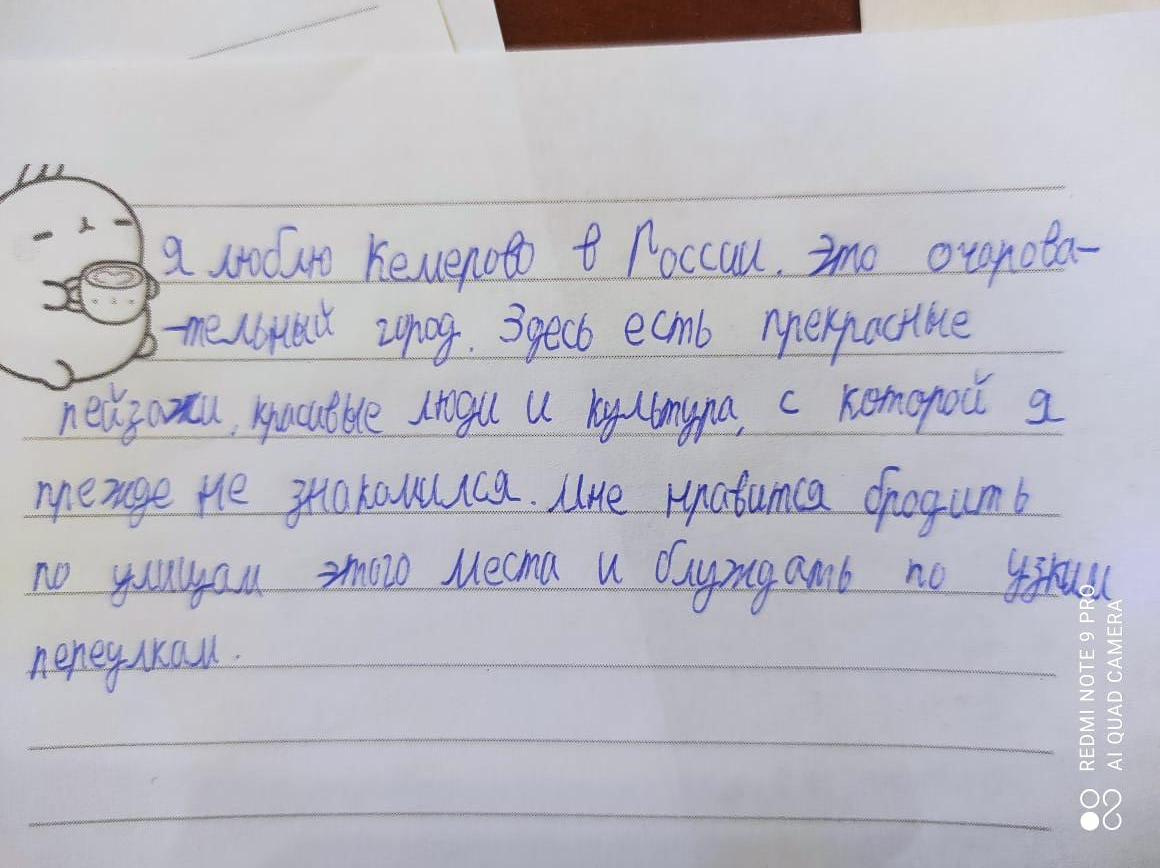 Я люблю Кемерово в России. Это очарова-
-тельный город. Здесь есть прекрасные
пейзажи, красивые люди и культура, с которой я
прежде не знакомился. Мне нравится бродить
по улицам этого места и блуждать по узким
переулкам.
REDMI NOTE 9 PRO
AI QUAD CAMERA